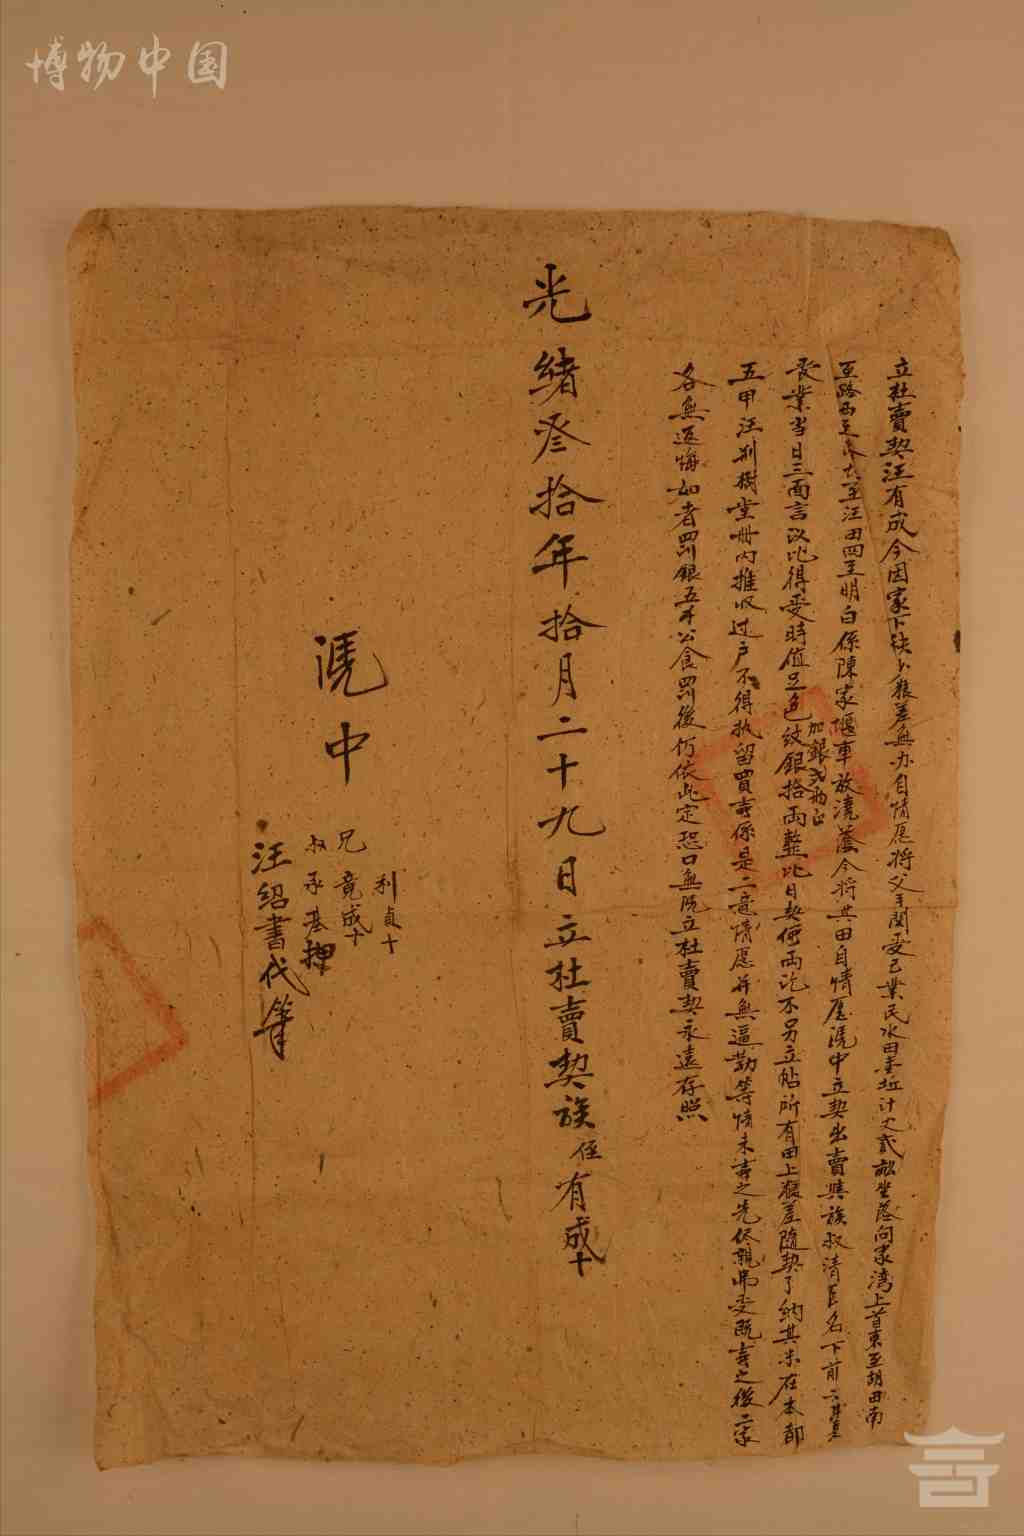 博物中国
立杜賣契汪有成今因家下缺少粮差無办自情愿将父手関受己業民水田壹坵計丈貳畝坐落向家湾上首東至胡田南
至路西至北至汪田四至明白係陳家堰車放澆蔭今將其田自情愿浼中立契出賣與族叔清臣名下前去
長業当日三面言议比得受時值足色紋銀拾両整比日契價両訖不另立帖所有田上粮差隨契了納其米在本都
加銀弍両正
五甲汪荆樹堂冊內推收过户不得执留買賣係是二意情愿并無逼勒等情未賣之先侭親弗受既賣之後二家
各無返悔如者罰銀五不公食罰後仍依此定恐口無凴立杜賣契永遠存照
光緒叄拾年拾月二十九日立杜賣契族侄有成十
凴中
利貞十
兄竟成十
叔承基押
汪紹書代筆